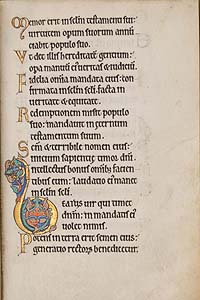 Memor erit in sc̄lm testamenti sui:
uirtutem operum suorum annū
ciabit populo suo.
Vt det illis hereditatē gentium:
opera manuū ei' ueritas & iudiciū.
Fidelia omnia mandata eius: con
firmata in sc̄lm sc̄li. facta in
ueritate & equitate.
Redemptionem misit populo
suo: mandauit in eternum
testamentum suum.
Sc̄m & terribile nomen eius:
inicium sapientie timor dn̄i.
Intellectus bonus omīb; facien
tibus eum: laudatio ei' manet
in sc̄lm sc̄li.
Beatus uir qui timet
dn̄m: in mandatis ei'
uolet nimis.
Potens in terra erit semen eius:
generatio rectorū benedicetur.